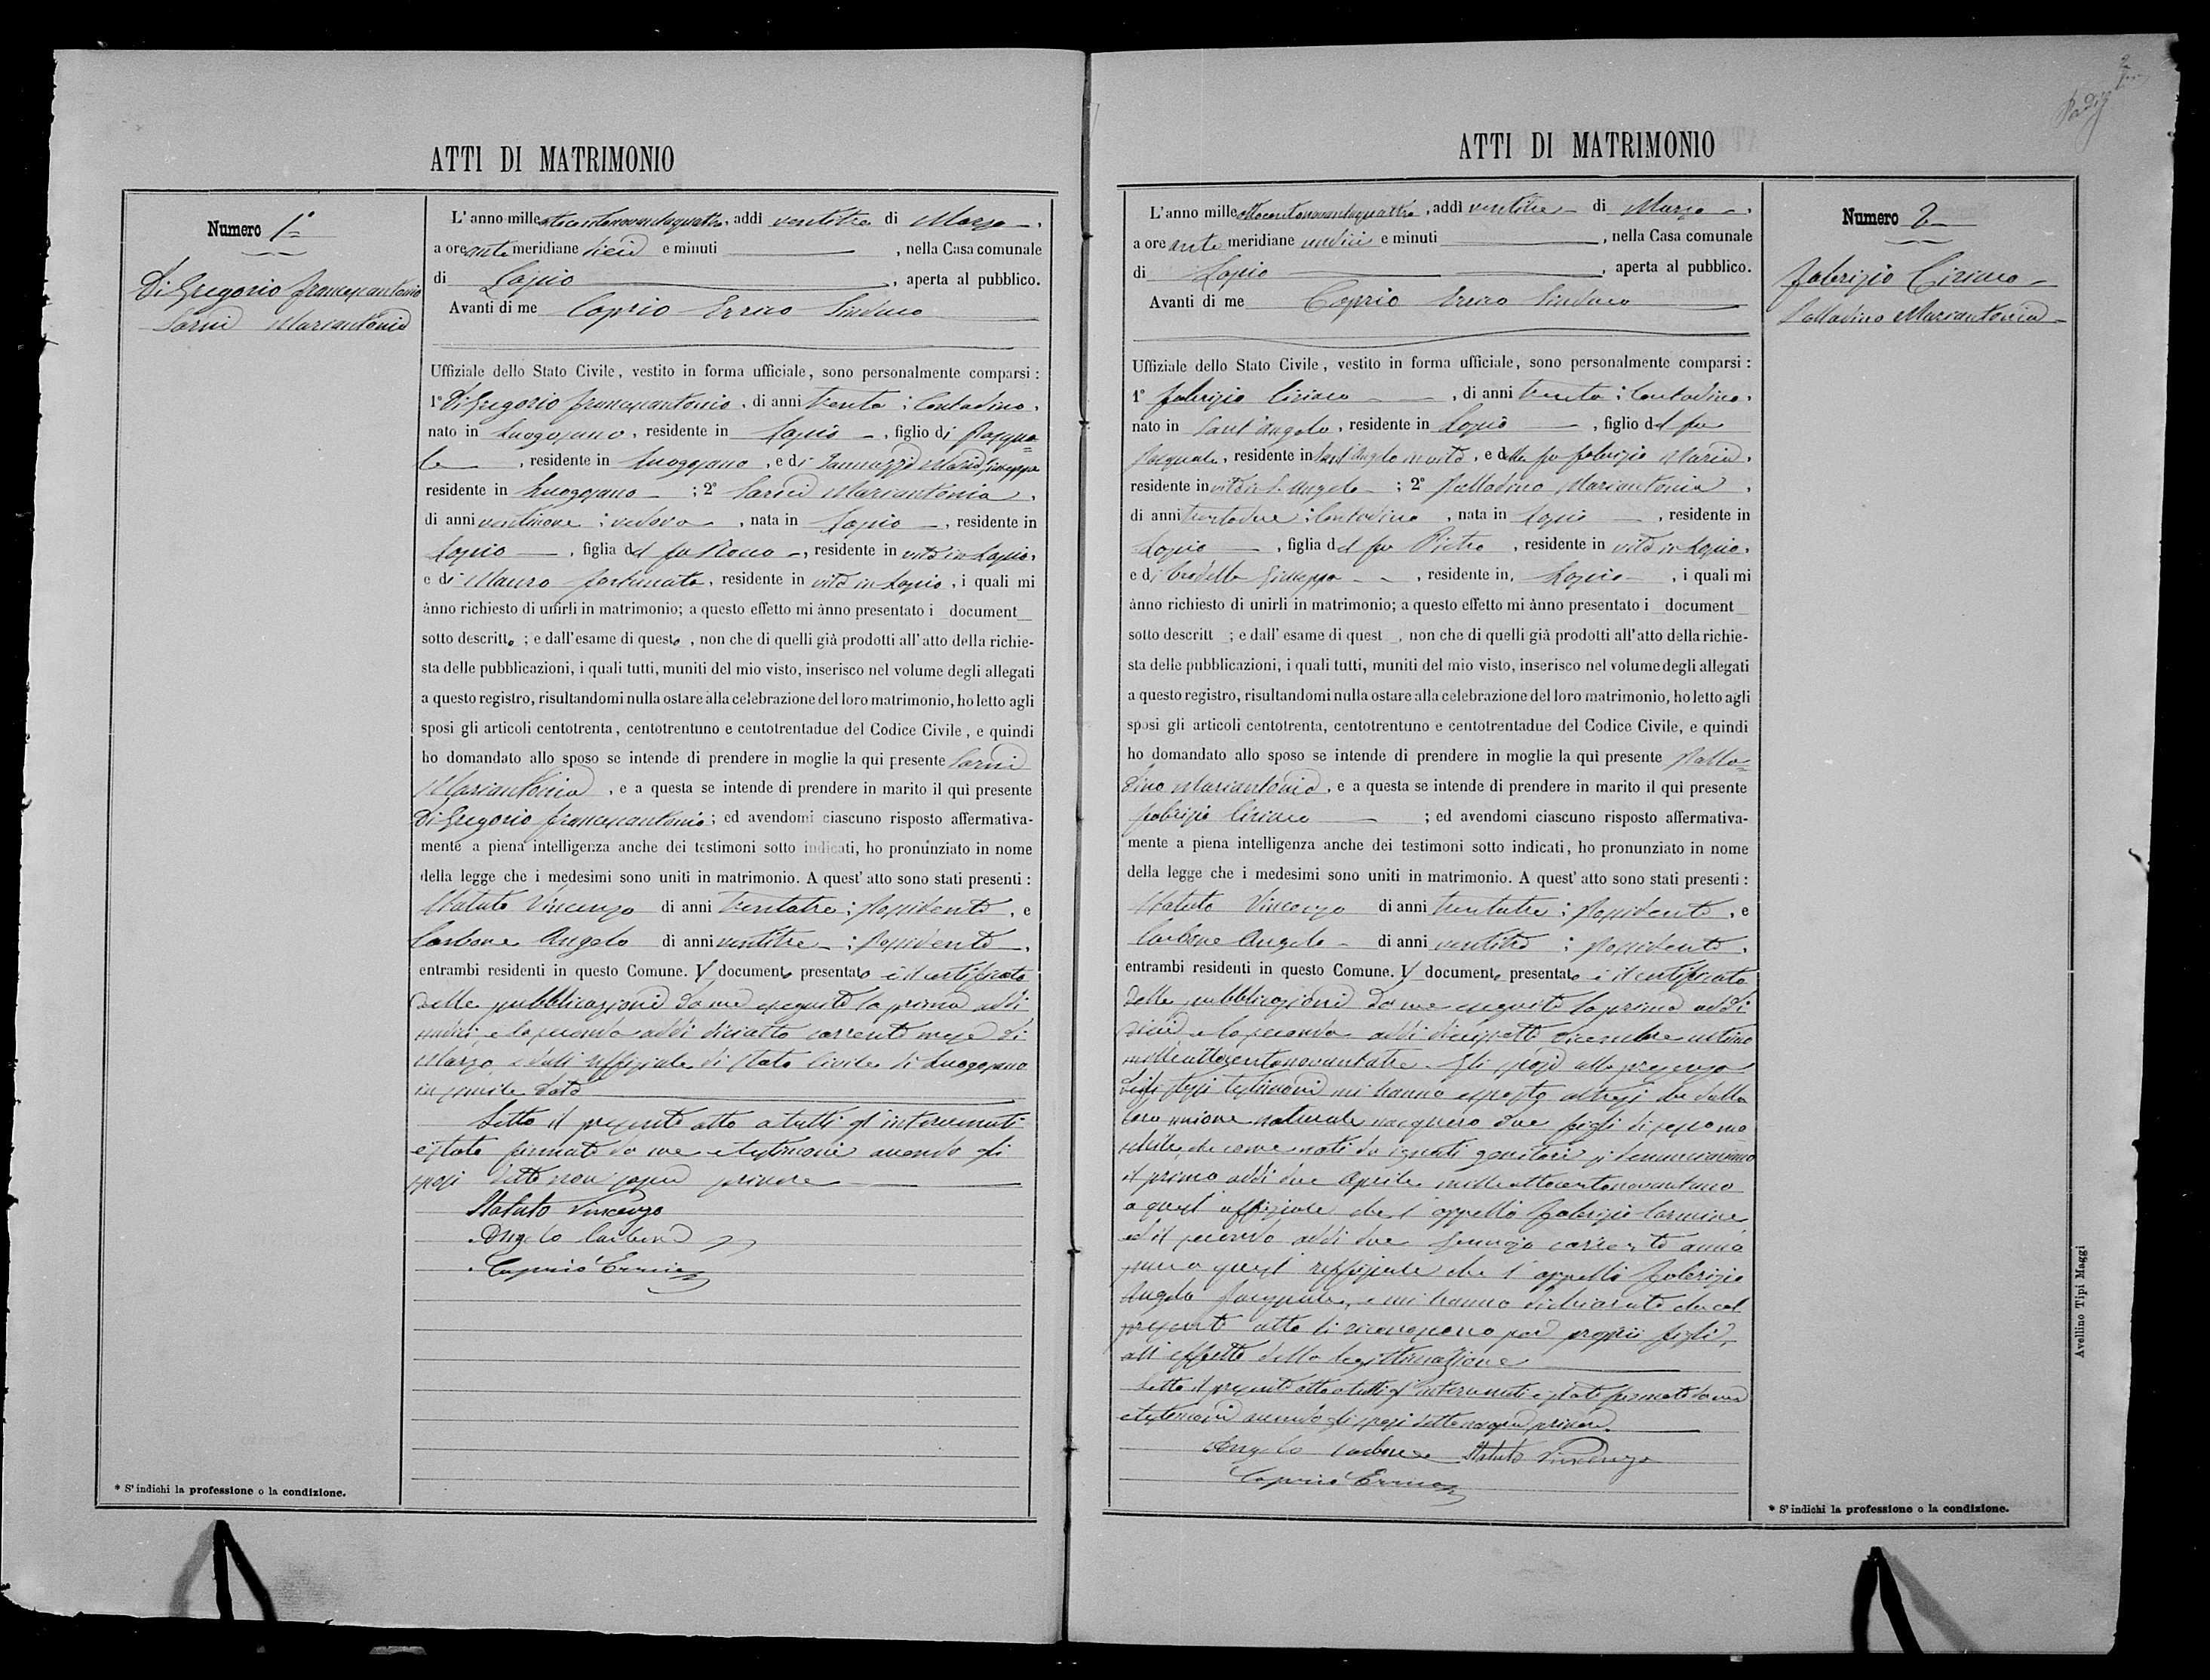 ATTI DI MATRIMONIO
Numero 1°
Di Gregorio Francescantonio
Sarni Mariantonia
L'anno milleottocentonovantaquattro, addì ventitre di Marzo,
a ore ante meridiane dieci e minuti , nella Casa comunale
di Lapio , aperta al pubblico.
Avanti di me Caprio Errico Sindaco
Uffiziale dello Stato Civile, vestito in forma ufficiale, sono personalmente comparsi:
1° Di Gregorio Francescantonio, di anni trenta; Contadino,
nato in Luogosano, residente in Lapio, figlio di Pasqua=
le , residente in Luogosano, e di Maria Giuseppa
residente in Luogosano ; 2° Sarni Mariantonia,
di anni ventinove; vedova , nata in Lapio , residente in
Lapio , figlia del fu Rocco , residente in vita in Lapio,
e di Mauro Fortunata, residente in vita in Lapio, i quali mi
ànno richiesto di unirli in matrimonio; a questo effetto mi ànno presentato i document
sotto descritto ; e dall'esame di questo , non che di quelli già prodotti all'atto della richie-
sta delle pubblicazioni, i quali tutti, muniti del mio visto, inserisco nel volume degli allegati
a questo registro, risultandomi nulla ostare alla celebrazione del loro matrimonio, ho letto agli
sposi gli articoli centotrenta, centotrentuno e centotrentadue del Codice Civile, e quindi
ho domandato allo sposo se intende di prendere in moglie la qui presente Sarni
Mariantonia , e a questa se intende di prendere in marito il qui presente
Di Gregorio Francescantonio; ed avendomi ciascuno risposto affermativa-
mente a piena intelligenza anche dei testimoni sotto indicati, ho pronunziato in nome
della legge che i medesimi sono uniti in matrimonio. A quest'atto sono stati presenti:
Statuto Vincenzo di anni trentatre; Possidente, e
Carbone Angelo di anni ventitre ; Possidente,
entrambi residenti in questo Comune. Il documento presentato è il certificato
delle pubblicazioni da me eseguite la prima addì
undici e la seconda addì diciotto corrente mese di
Marzo, e dall'Uffiziale di Stato Civile di Luogosano
in simile data
Letto il presente atto a tutti gl'intervenuti
è stato firmato da me e testimoni avendo gli
sposi detto non saper scrivere
Statuto Vincenzo
Angelo Carbone
Caprio Errico
* S'indichi la professione o la condizione.
ATTI DI MATRIMONIO
Numero 2
Fabrizio Ciriaco
Palladino Mariantonia
L'anno milleottocentonovantaquattro, addì ventitre di Marzo,
a ore ante meridiane undici e minuti , nella Casa comunale
di Lapio , aperta al pubblico.
Avanti di me Caprio Errico Sindaco
Uffiziale dello Stato Civile, vestito in forma ufficiale, sono personalmente comparsi:
1° Fabrizio Ciriaco , di anni trenta; Contadino,
nato in Sant'Angelo, residente in Lapio , figlio del fu
Pasquale, residente in Sant'Angelo in vita, e della fu Fabrizio Maria,
residente in vita in S. Angelo ; 2° Palladino Mariantonia,
di anni trentadue; Contadina , nata in Lapio , residente in
Lapio , figlia del fu Pietro , residente in vita in Lapio,
e di Giuseppa , residente in Lapio , i quali mi
ànno richiesto di unirli in matrimonio; a questo effetto mi ànno presentato i document
sotto descritt ; e dall'esame di quest , non che di quelli già prodotti all'atto della richie-
sta delle pubblicazioni, i quali tutti, muniti del mio visto, inserisco nel volume degli allegati
a questo registro, risultandomi nulla ostare alla celebrazione del loro matrimonio, ho letto agli
sposi gli articoli centotrenta, centotrentuno e centotrentadue del Codice Civile, e quindi
ho domandato allo sposo se intende di prendere in moglie la qui presente Palla=
dino Mariantonia, e a questa se intende di prendere in marito il qui presente
Fabrizio Ciriaco ; ed avendomi ciascuno risposto affermativa-
mente a piena intelligenza anche dei testimoni sotto indicati, ho pronunziato in nome
della legge che i medesimi sono uniti in matrimonio. A quest'atto sono stati presenti:
Statuto Vincenzo di anni trentatre; Possidente, e
Carbone Angelo di anni ventitre ; Possidente,
entrambi residenti in questo Comune. Il documento presentato è il certificato
delle pubblicazioni da me eseguite la prima addì
dieci e la seconda addì diciassette Dicembre ultimo
milleottocentonovantatre. Gli sposi alla presenza
degli stessi testimoni mi hanno esposto altresì che dalla
loro unione naturale nacquero due figli di sesso ma=
schile, che come nati da ignoti genitori si denunciarono
il primo addì due Aprile milleottocentonovantuno
a quest'uffiziale che l'appellò Fabrizio Carmine
ed il secondo addì due Gennajo corrente anno
pure a quest'uffiziale che l'appellò Fabrizio
Angelo Pasquale, e mi hanno dichiarato che col
presente atto li riconoscono per proprii figli,
all'effetto della legittimazione
Letto il presente atto a tutti gl'intervenuti è stato firmato da me
e testimoni avendo gli sposi detto non saper scrivere.
Angelo Carbone Statuto Vincenzo
Caprio Errico
* S'indichi la professione o la condizione.
Avellino Tipi Maggi